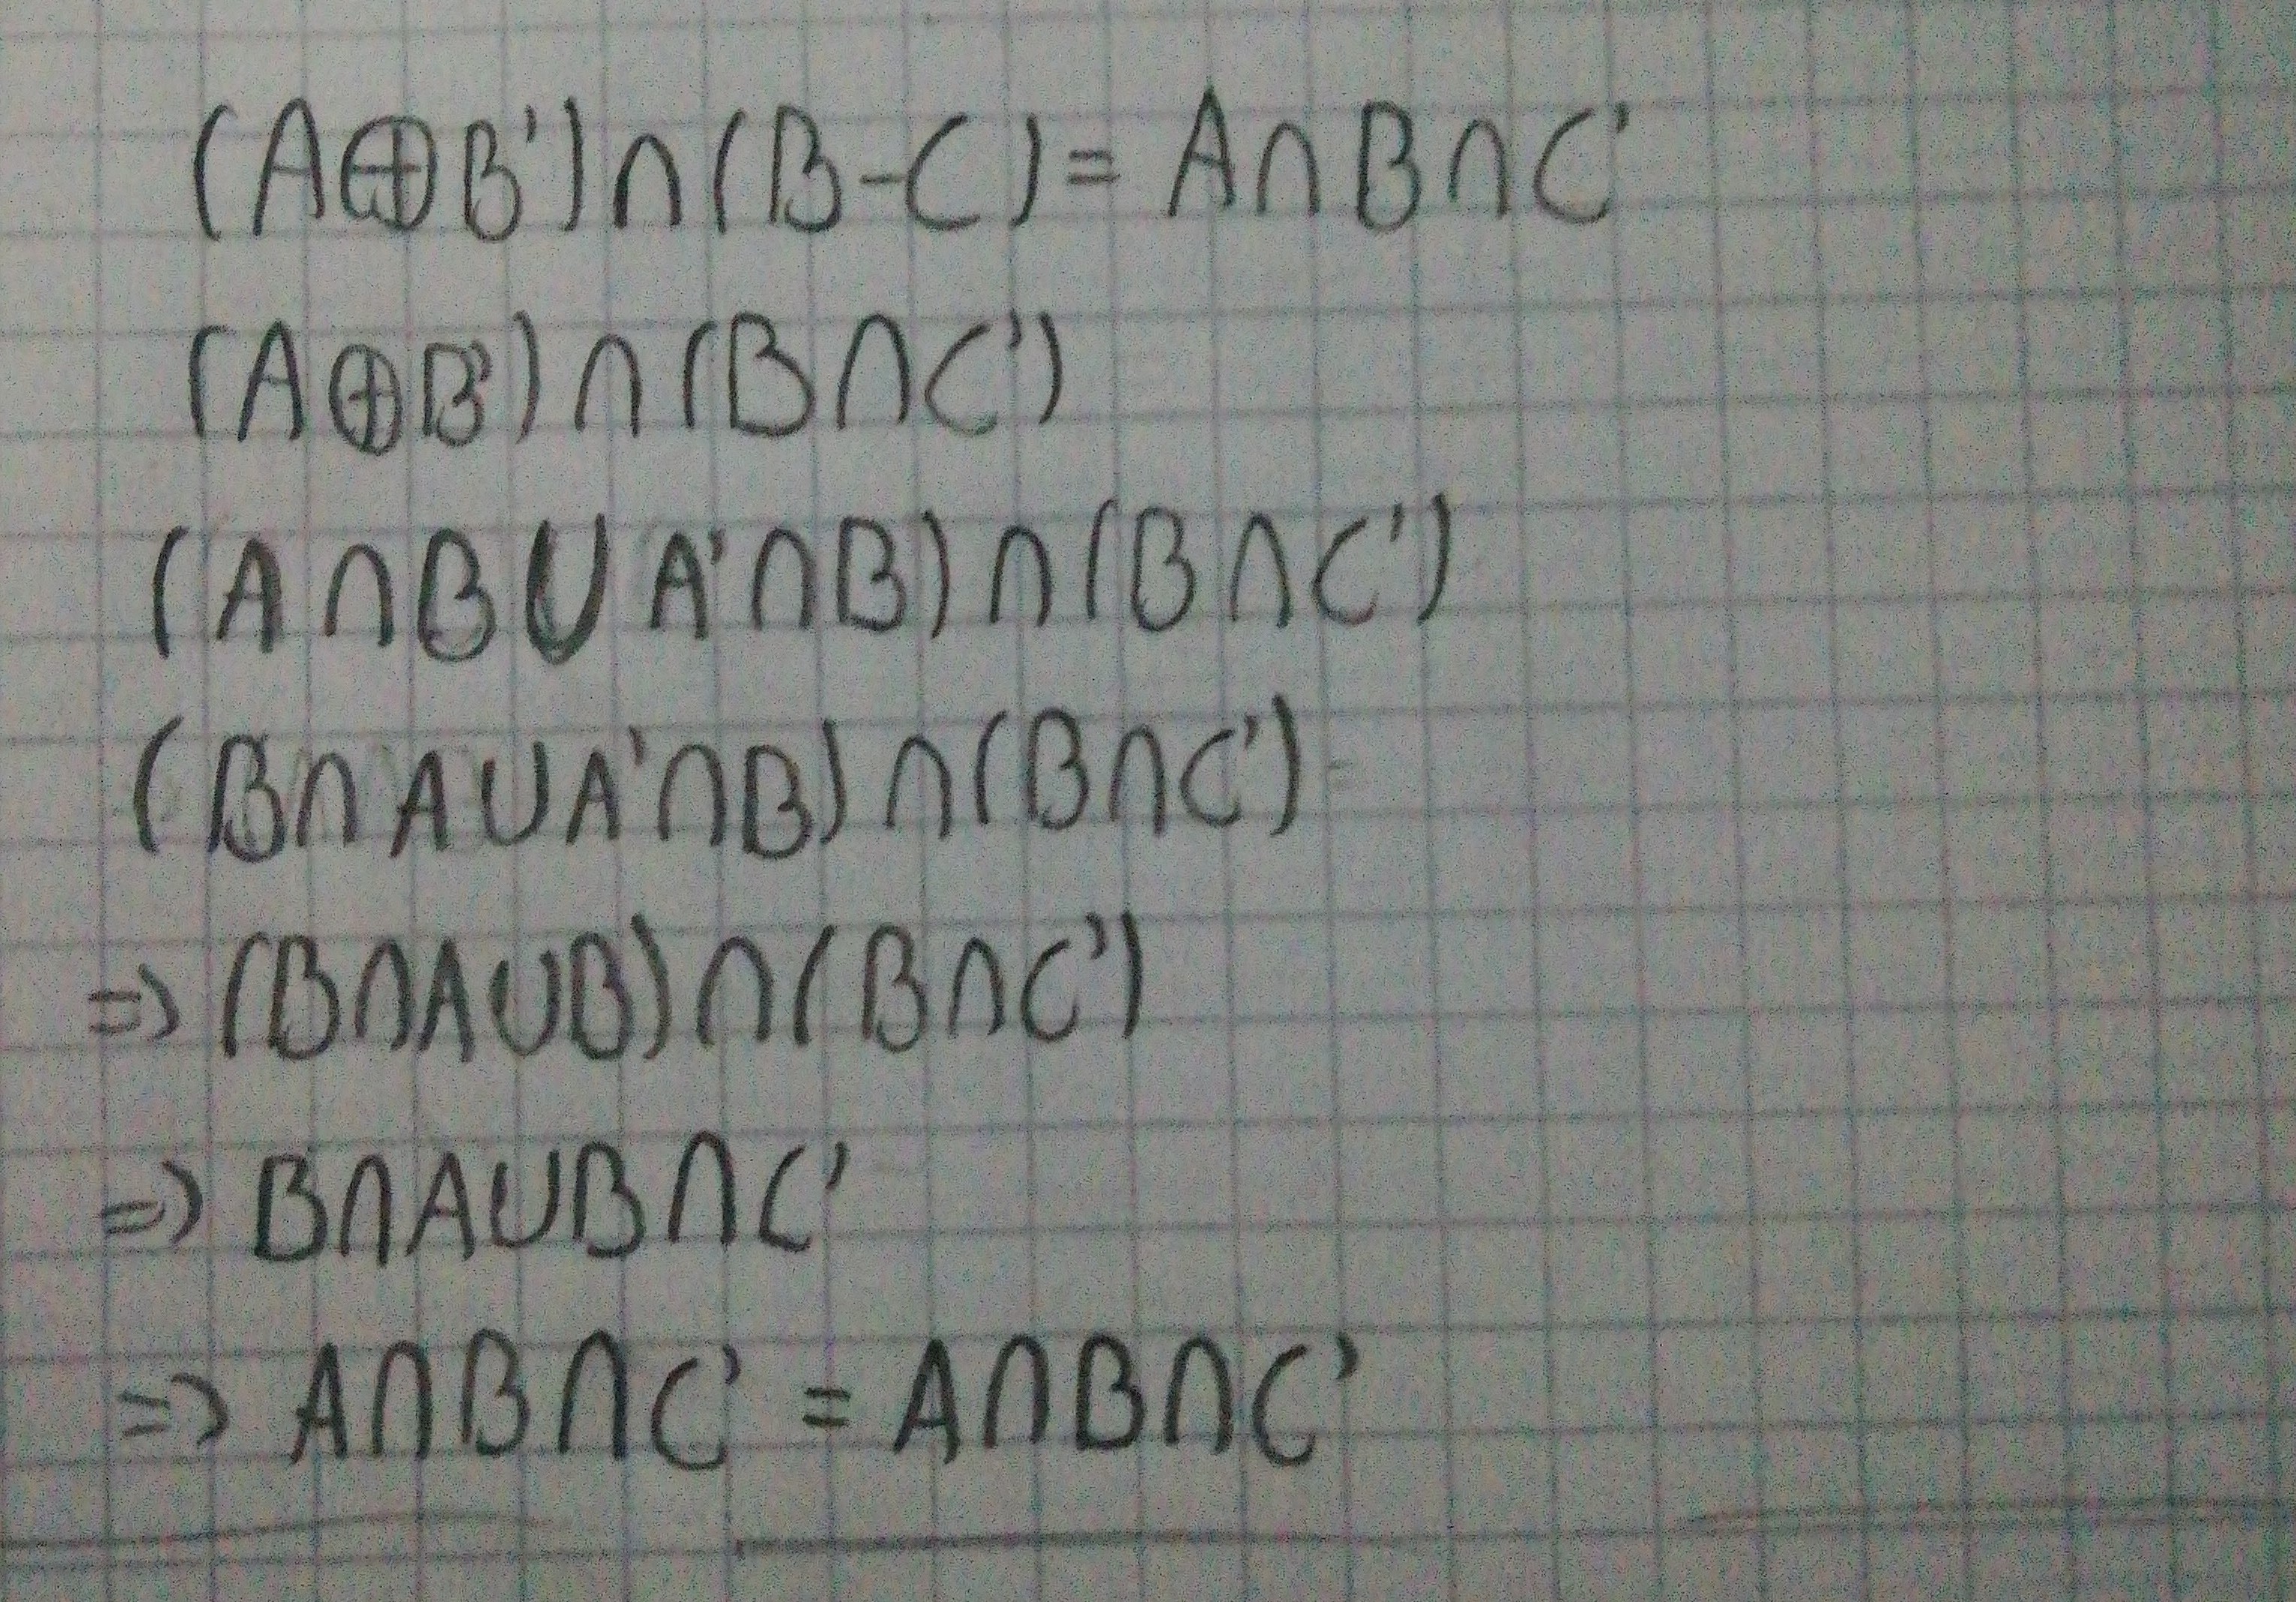 (A⊕B')∩(B-C)= A∩B∩C'
(A⊕B')∩(B∩C')
(A∩B∪A'∩B)∩(B∩C')
(B∩A∪A'∩B)∩(B∩C')=
=> (B∩A∪B)∩(B∩C')
=> B∩A∪B∩C'
=> A∩B∩C' = A∩B∩C'